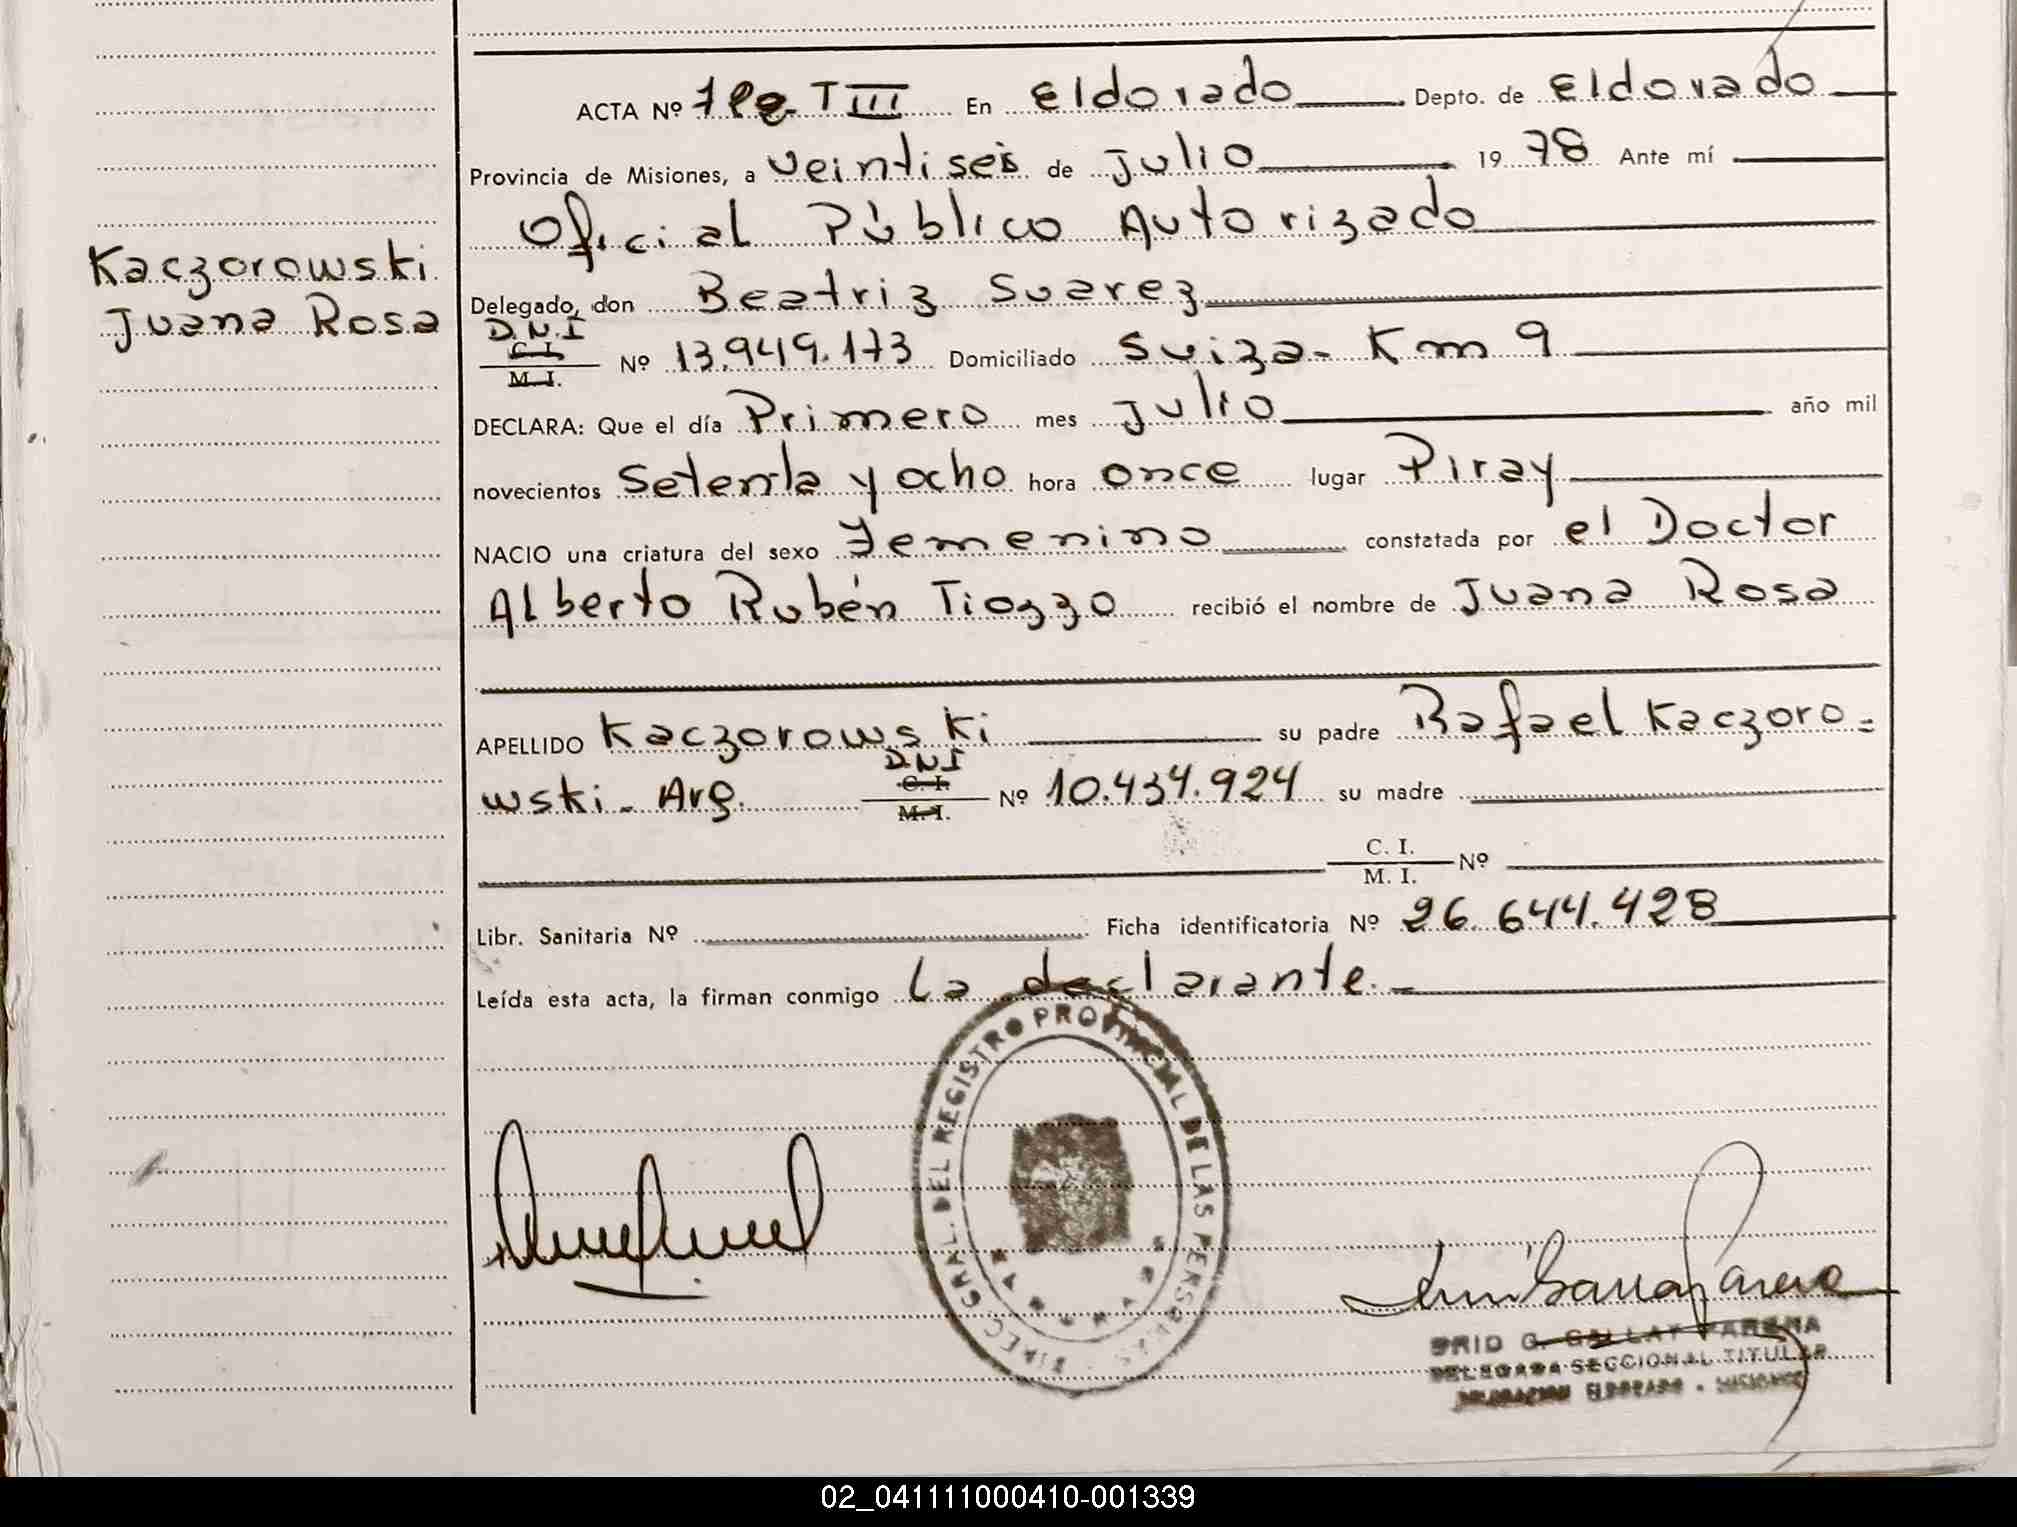 ACTA Nº T III En Eldorado Depto. de Eldorado
Provincia de Misiones, a veintiseis de Julio 19 78 Ante mí
Oficial Público Autorizado
Kaczorowski
Juana Rosa
Delegado, don Beatriz Suarez
D.N.I
C. I.
M. I.
Nº 13.949.173 Domiciliado Suiza - Km 9
DECLARA: Que el día Primero mes Julio año mil
novecientos Setenta y ocho hora once lugar Piray
NACIO una criatura del sexo Femenino constatada por el Doctor
Alberto Rubén Tiozzo recibió el nombre de Juana Rosa
APELLIDO Kaczorowski su padre Rafael Kaczoro=
wski - Arg. D.N.I Nº 10.434.924 su madre
C. I.
M. I.
C. I. Nº
M. I.
Libr. Sanitaria Nº Ficha identificatoria Nº 26.644.428
Leída esta acta, la firman conmigo la declarante.-
DIREC. GRAL. DEL REGISTRO PROVINCIAL DE LAS PERSONAS
G. GALLAY PARANA
DELEGADA SECCIONAL TITULAR
DELEGACION ELDORADO - MISIONES
02_041111000410-001339